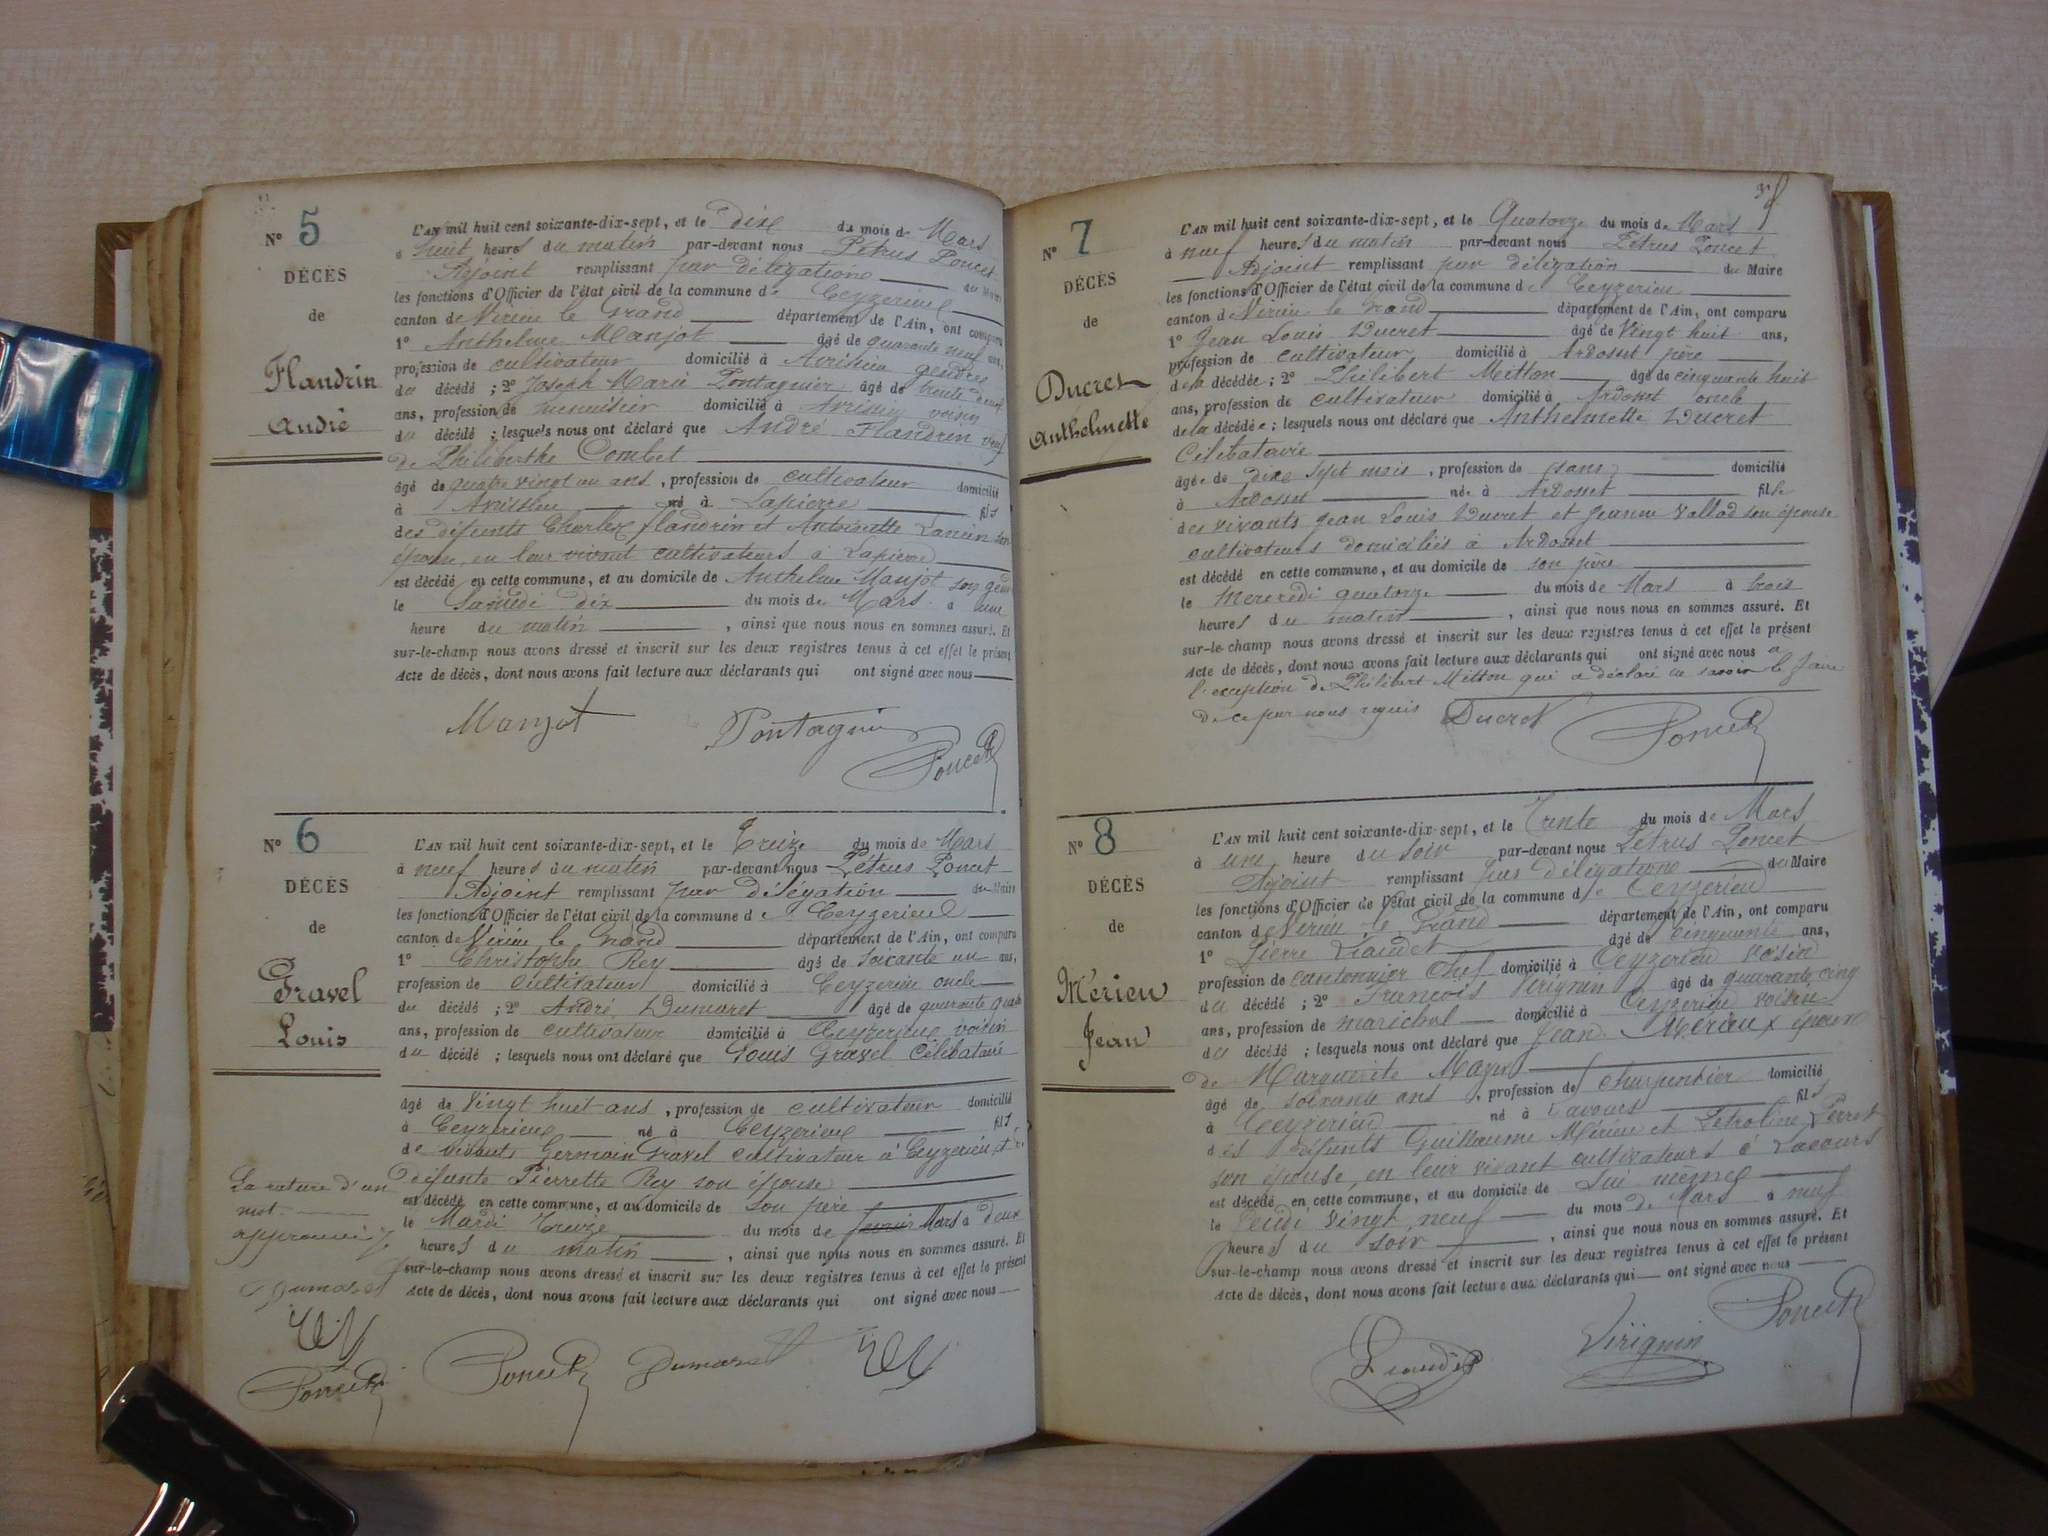 Nº 5
DÉCÈS
de
Flandrin
André
L'AN mil huit cent soixante-dix-sept, et le Dix du mois de Mars
à huit heures du matin par-devant nous Pétrus Poncet
Adjoint remplissant par délégation du Maire
les fonctions d'Officier de l'état civil de la commune de Ceyzerieu
canton de Virieu le Grand département de l'Ain, ont comparu
1º Anthelme Manjot âgé de quarante neuf ans,
profession de cultivateur domicilié à Avrissieu gendre
du décédé ; 2º Joseph Marie Pontagnier âgé de trente neuf
ans, profession de menuisier domicilié à voisin
du décédé ; lesquels nous ont déclaré que André Flandrin veuf
de Philiberthe Combet
âgé de quatre vingt un ans, profession de cultivateur domicilié
à né à Lapierre fils
des défunts Charles flandrin et Antoinette son
épouse, en leur vivant cultivateurs à Lapierre
est décédé en cette commune, et au domicile de Anthelme Manjot son gend
le Samedi dix du mois de Mars à une
heure du matin, ainsi que nous nous en sommes assuré. Et
sur-le-champ nous avons dressé et inscrit sur les deux registres tenus à cet effet le présent
Acte de décès, dont nous avons fait lecture aux déclarants qui ont signé avec nous
Manjot Pontagnier
Poncet
Nº 6
DÉCÈS
de
Gravel
Louis
L'AN mil huit cent soixante-dix-sept, et le Treize du mois de Mars
à neuf heures du matin par-devant nous Pétrus Poncet
Adjoint remplissant par délégation du Maire
les fonctions d'Officier de l'état civil de la commune de Ceyzerieu
canton de Virieu le Grand département de l'Ain, ont comparu
1º Christophe Rey âgé de soixante un ans,
profession de cultivateur domicilié à Ceyzerieu oncle
du décédé ; 2º André Dumaret âgé de quarante quatre
ans, profession de cultivateur domicilié à Ceyzerieu voisin
du décédé ; lesquels nous ont déclaré que Louis Gravel Célibataire
âgé de vingt huit ans, profession de cultivateur domicilié
à Ceyzerieu né à Ceyzerieu fils
de vivant Germain Gravel cultivateur à Ceyzerieu et de
défunte Pierrette Rey son épouse
est décédé en cette commune, et au domicile de son père
le Mardi treize du mois de fevrier Mars à deux
heures du matin, ainsi que nous nous en sommes assuré. Et
sur-le-champ nous avons dressé et inscrit sur les deux registres tenus à cet effet le présent
Acte de décès, dont nous avons fait lecture aux déclarants qui ont signé avec nous
La rature d'un
mot
approuvée
Dumaret
Rey
Poncet
Poncet Dumaret Rey
Nº 7
DÉCÈS
de
Ducret
Anthelmette
L'AN mil huit cent soixante-dix-sept, et le Quatorze du mois de Mars
à neuf heures du matin par-devant nous Pétrus Poncet
Adjoint remplissant par délégation du Maire
les fonctions d'Officier de l'état civil de la commune de Ceyzerieu
canton de Virieu le Grand département de l'Ain, ont comparu
1º Jean Louis Ducret âgé de Vingt huit ans,
profession de cultivateur domicilié à Ardosset père
de la décédée ; 2º Philibert Mitton âgé de cinquante huit
ans, profession de cultivateur domicilié à Ardosset oncle
de la décédée ; lesquels nous ont déclaré que Anthelmette Ducret
Célibataire
âgée de dix sept mois, profession de sans domicilié
à Ardosset née à Ardosset fille
des vivants Jean Louis Ducret et Jeanne Vallod son épouse
cultivateurs domiciliés à Ardosset
est décédé en cette commune, et au domicile de son père
le Mercredi quatorze du mois de Mars à trois
heures du matin, ainsi que nous nous en sommes assuré. Et
sur-le-champ nous avons dressé et inscrit sur les deux registres tenus à cet effet le présent
Acte de décès, dont nous avons fait lecture aux déclarants qui ont signé avec nous à
l'exception de Philibert Mitton qui a déclaré ne savoir le faire
de ce par nous requis Ducret Poncet
Nº 8
DÉCÈS
de
Mérieu
Jean
L'AN mil huit cent soixante-dix-sept, et le Trente du mois de Mars
à une heure du soir par-devant nous Pétrus Poncet
Adjoint remplissant par délégation du Maire
les fonctions d'Officier de l'état civil de la commune de Ceyzerieu
canton de Virieu le Grand département de l'Ain, ont comparu
1º Pierre âgé de cinquante ans,
profession de cantonnier chef domicilié à Ceyzerieu voisin
du décédé ; 2º François Virignin âgé de quarante cinq
ans, profession de maréchal domicilié à Ceyzerieu voisin
du décédé ; lesquels nous ont déclaré que Jean Mérieux époux
de Marguerite
âgé de soixante ans, profession de charpentier domicilié
à Ceyzerieu né à Lavours fils
des défunts Guillaume Mérieu et Pétroline Perret
son épouse, en leur vivant cultivateurs à Lavours
est décédé en cette commune, et au domicile de Lui même
le Jeudi vingt neuf du mois de Mars à neuf
heures du soir, ainsi que nous nous en sommes assuré. Et
sur-le-champ nous avons dressé et inscrit sur les deux registres tenus à cet effet le présent
Acte de décès, dont nous avons fait lecture aux déclarants qui ont signé avec nous
Virignin Poncet